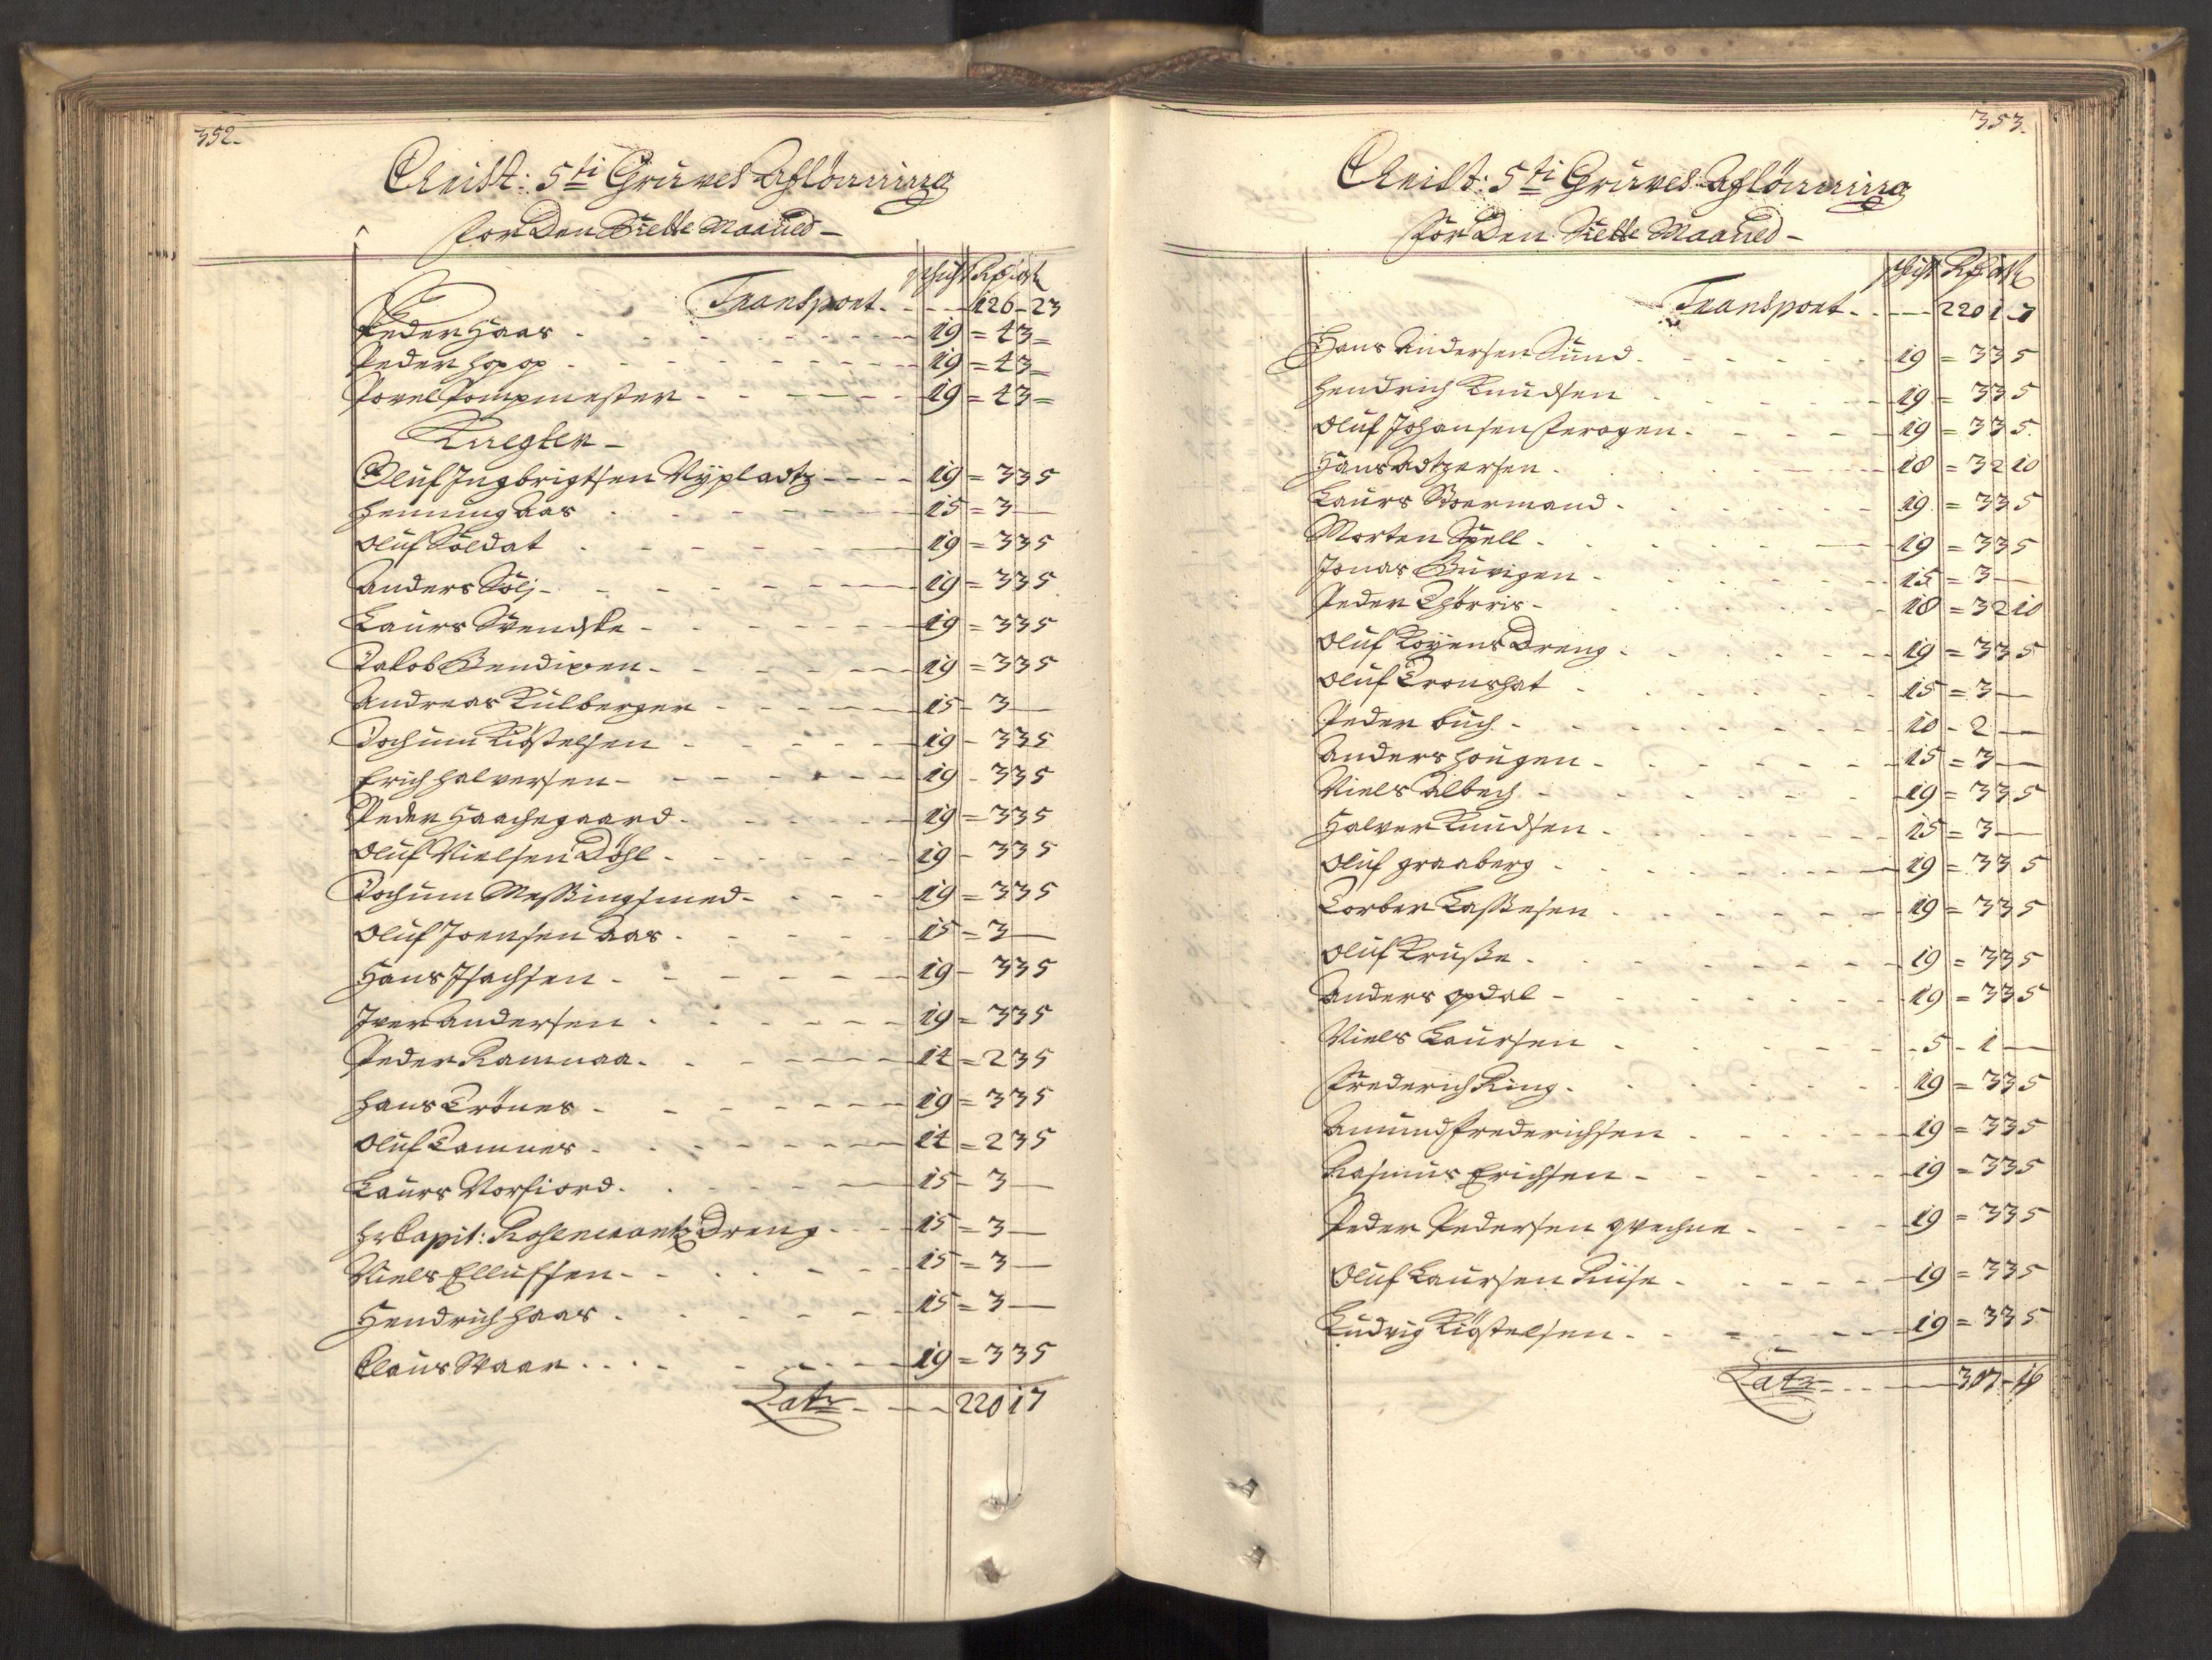 352.
Christ: 5ti Gruves Aflönning
for den Siette Maaned
schicht Rdr ort ß
Transport. 126 - 23
Peder Haas 19 = 4 3 =
Peder Hopop 19 = 4 3 =
Povel Pompmester 19 = 4 3 =
Knegter
Oluf Ingbrigtsen Nypladtz 19 = 3 3 5
Henning Aas 15 = 3
Oluf Soldat 19 = 3 3 5
Anders Kolj 19 = 3 3 5
Laurs Svendske 19 = 3 3 5
Jakob Bendixen 19 = 3 3 5
Andreas Kulberger 15 - 3
Jochum Kiöstelsen 19 - 3 3 5
Erich Halversen 19 - 3 3 5
Peder Haachegaard 19 = 3 3 5
Oluf Nielsen Döhl 19 - 3 3 5
Jochum Messingsmed 19 = 3 3 5
Oluf Joensen Aas 15 = 3
Hans Isachsen 19 - 3 3 5
Iver Andersen 19 = 3 3 5
Peder Ramnaa 14 = 2 3 5
Hans Trönes 19 = 3 3 5
Oluf Tamnes 14 = 2 3 5
Laurs Norfiord 15 - 3
Hr Capit: Kohlewants Dreng 15 = 3
Niels Ellufsen 15 = 3
Hendrich Haas 15 = 3
Claus Staar 19 = 3 3 5
Latr 220 1 7
353.
Christ: 5ti Gruves Aflönning
for den Siette Maaned
schicht Rdr ort ß
Transport. 220 1 7
Hans Andersen Sund 19 = 3 3 5
Hendrich Knudsen 19 = 3 3 5
Oluf Johansen Feragen 19 = 3 3 5
Hans Adtzersen 18 = 3 2 10
Laurs Stoermand 19 = 3 3 5
Morten Spell 19 = 3 3 5
Jonas Buvigen 15 = 3
Peder Thorris 18 = 3 2 10
Oluf Royens Dreng 19 = 3 3 5
Oluf Tronshat 15 = 3
Peder Buch 10 - 2
Anders Hougen 15 = 3
Niels Albech 19 = 3 3 5
Halver Knudsen 15 = 3
Oluf Graaberg 19 = 3 3 5
Torber Lassesen 19 = 3 3 5
Oluf Kruse 19 = 3 3 5
Anders Opdal 19 = 3 3 5
Niels Laursen 5 - 1
Frederich Ring 19 = 3 3 5
Amund Frederichsen 19 = 3 3 5
Rasmus Erichsen 19 = 3 3 5
Peder Pedersen Qvechne 19 = 3 3 5
Oluf Laursen Riise 19 = 3 3 5
Ludvig Kiöstelsen 19 = 3 3 5
Latr 307 - 14